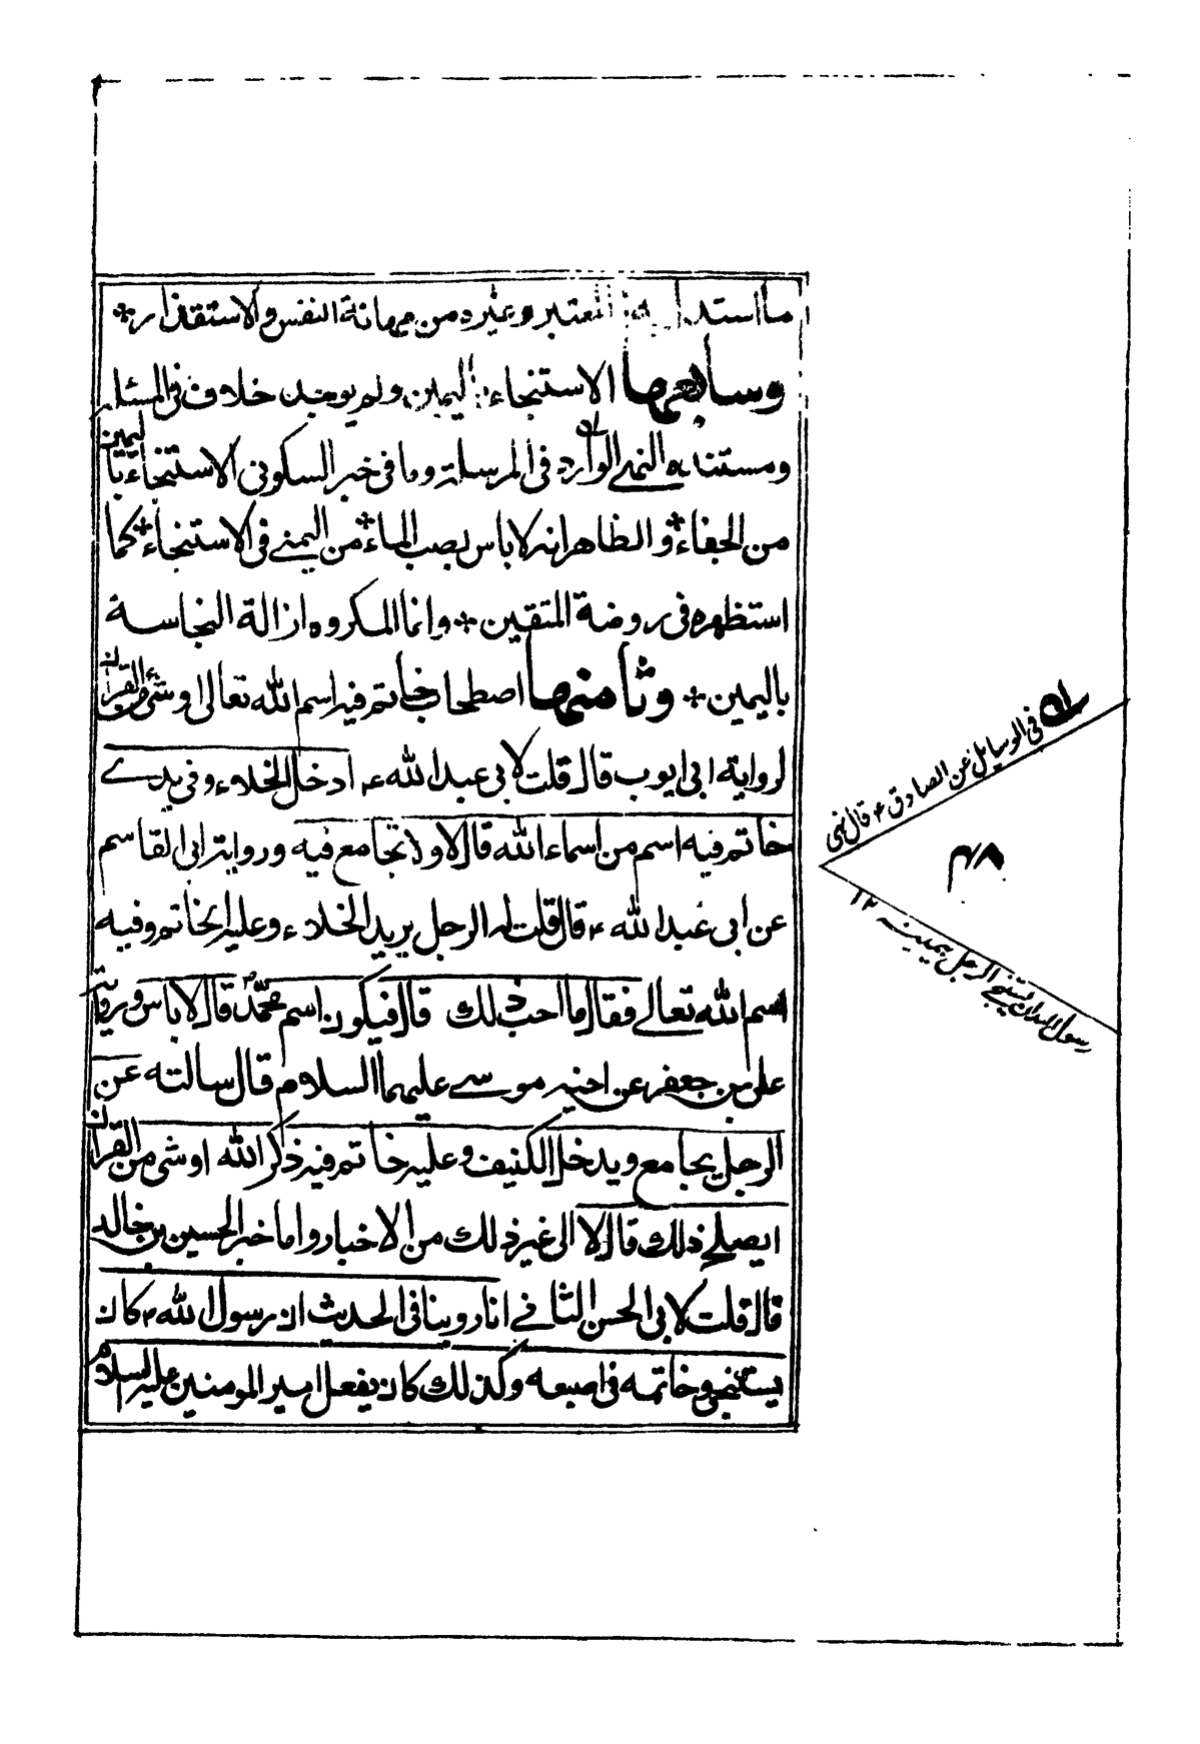 ما استدل به المعتبر وغيره من مهانة النفس والاستقذار *
وسابعها الاستنجاء باليمين ولم يوجد خلاف فى المسئلة
ومستنده النهى الوارد فى المرسلة وما فى خبر السكونى الاستنجاء باليمين
من الجفاء * والظاهر انه لا باس بصب الماء * من اليمنى فى الاستنجاء * كما
استظهره فى روضة المتقين * وانما المكروه ازالة النجاسة
باليمين * وثامنها اصطحاب خاتم فيه اسم الله تعالى او شئ من القران
لرواية ابى ايوب قال قلت لابى عبد الله ء ادخل الخلاء وفى يدے
خاتم فيه اسم من اسماء الله قال لا ولا تجامع فيه ورواية ابى القاسم
عن ابى عبد الله ء قال قلت له الرجل يريد الخلاء وعليه الخاتم وفيه
اسم الله تعالے فقال ما احب ذلك قال فيكون اسم محمدؐ قال لا باس ورواية
على بن جعفر عن اخيه موسے عليهما السلام قال سالته عن
الرجل يجامع ويدخل الكنيف وعليه خاتم فيه ذكر الله او شى من القران
ايصلح ذلك قال لا الى غير ذلك من الاخبار واما خبر الحسين بن خالد
قال قلت لابى الحسن الثانے انا روينا فى الحديث ان رسول الله ء كان
يستنجى وخاتمه فى اصبعه وكذلك كان يفعل امير المومنين عليه السلام
فى الوسايل عن الصادق ء قال نهى
رسول الله ان يستنجے الرجل بيمينه ١٢